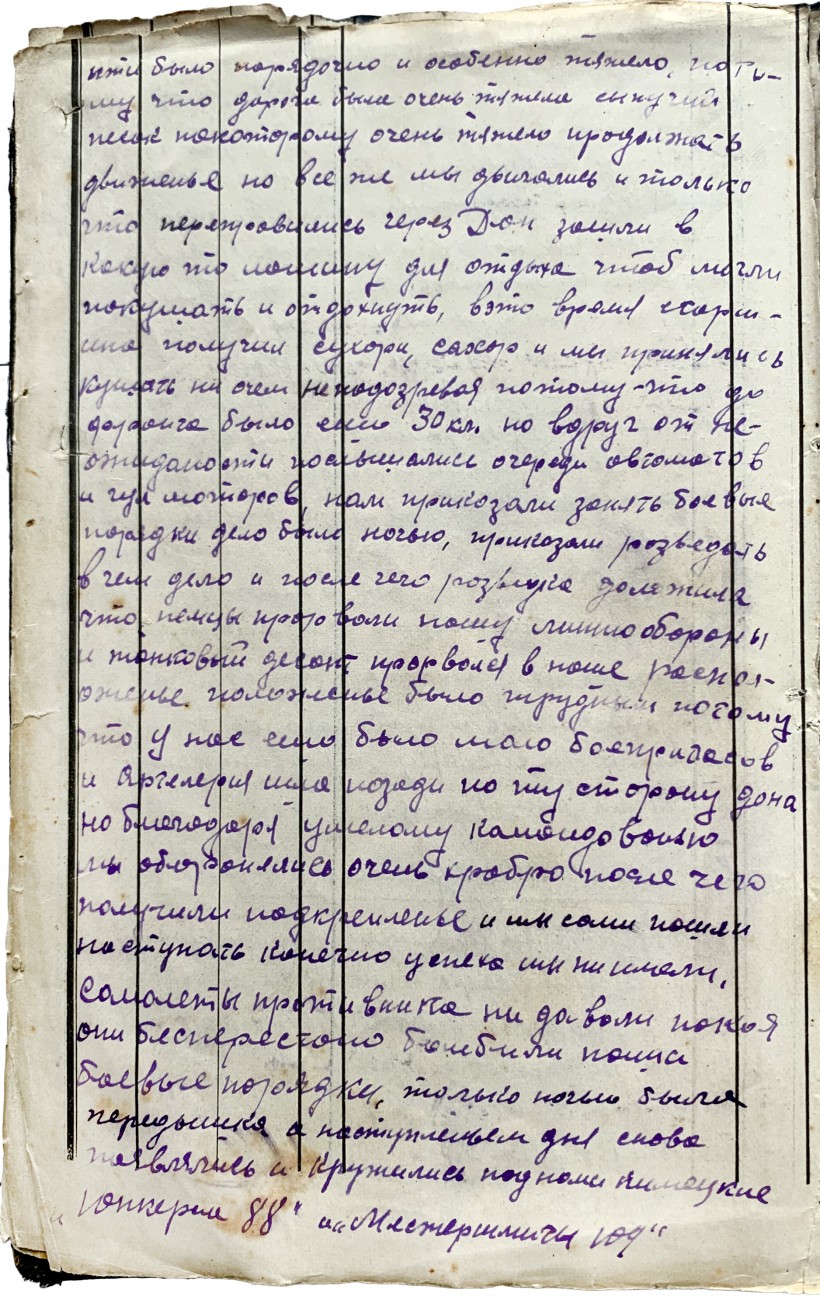 итти было порядочно и особенно тяжело, поты-
му что дорога была очень тяжела сыпучий
песок покоторому очень тяжело продолжать
движенье но все же мы двигались и только
что переправились через Дон зашли в
какую то лощину для отдыха чтоб могли
покушать и отдохнуть, вэто время старш-
ина получил сухари, сахар и мы принялись
кушать ни очем неподозревая потому-что до
фронта было ещо 30 км. но вдруг от не-
ожиданости послышались очереди автоматов
и гул моторов, нам приказали занять боевые
порядки дело было ночью, приказали розведать
в чем дело и после чего розведка доложила
что немцы прорвали нашу линию обороны
и танковый десант прорвался в наше распол-
оженье положенье было трудным потому
что у нас ещо было мало боеприпасов
и Артелерия шла позади по ту сторону дона
но благодоря умелому камандованью
мы оборонялись очень храбро после чего
получили подкрепленье и мы сами пошли
наступать конечно успеха мы ни имели,
самолеты противника ни давали покоя
они бесперестано бомбили наши
боевые порядки, только ночью была
передышка а наступленьем дня снова
появлялись и кружились поднами нимецкие
„Юнкерсы 88" и „Месжершмиты 109"